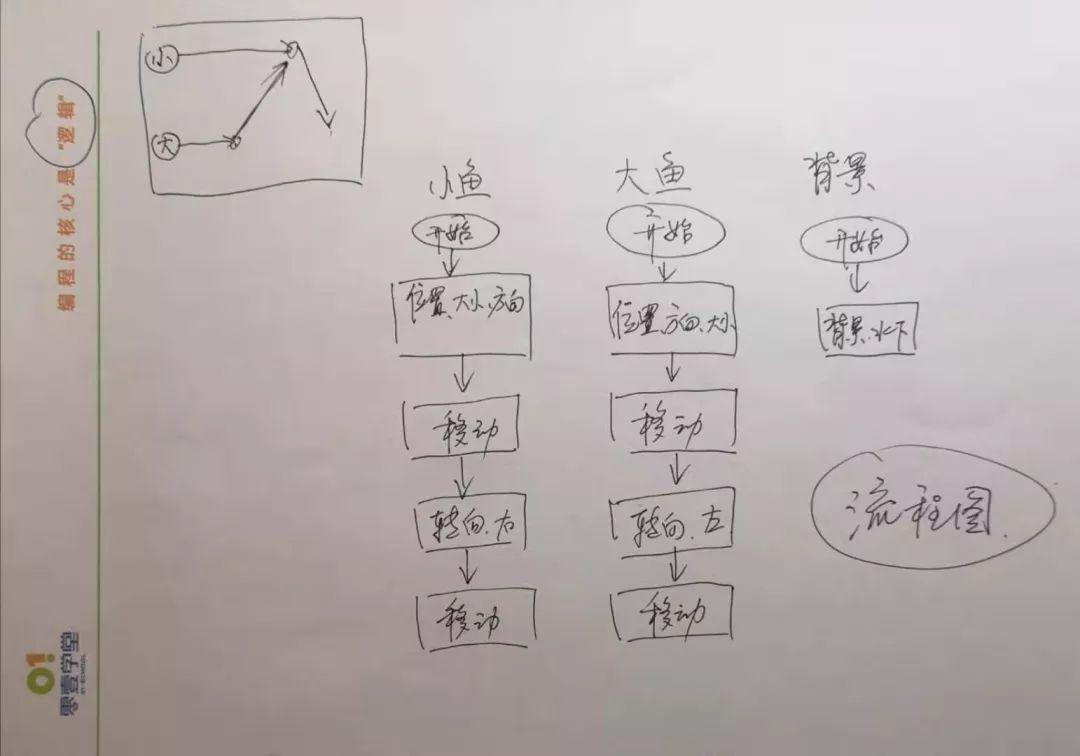 编程的核心是"逻辑"
01
零壹学堂
小
大
小鱼
开始
位置、大小、方向
移动
转向、右
移动
大鱼
开始
位置、方向、大小
移动
转向、左
移动
背景
开始
背景、水下
流程图